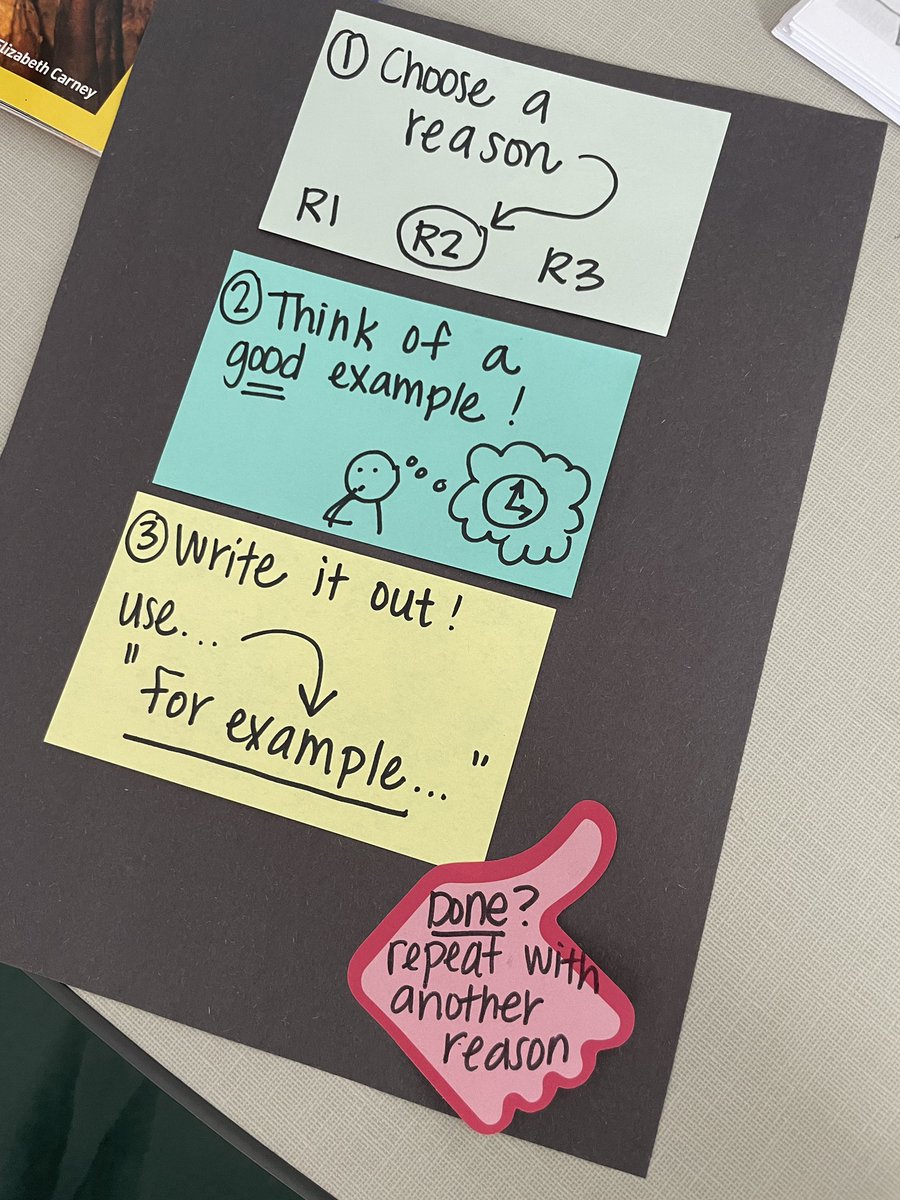 Elizabeth Carney
① Choose a
reason
R1 R2 R3
② Think of a
good example!
③ Write it out!
use...
"for example..."
Done?
repeat with
another
reason